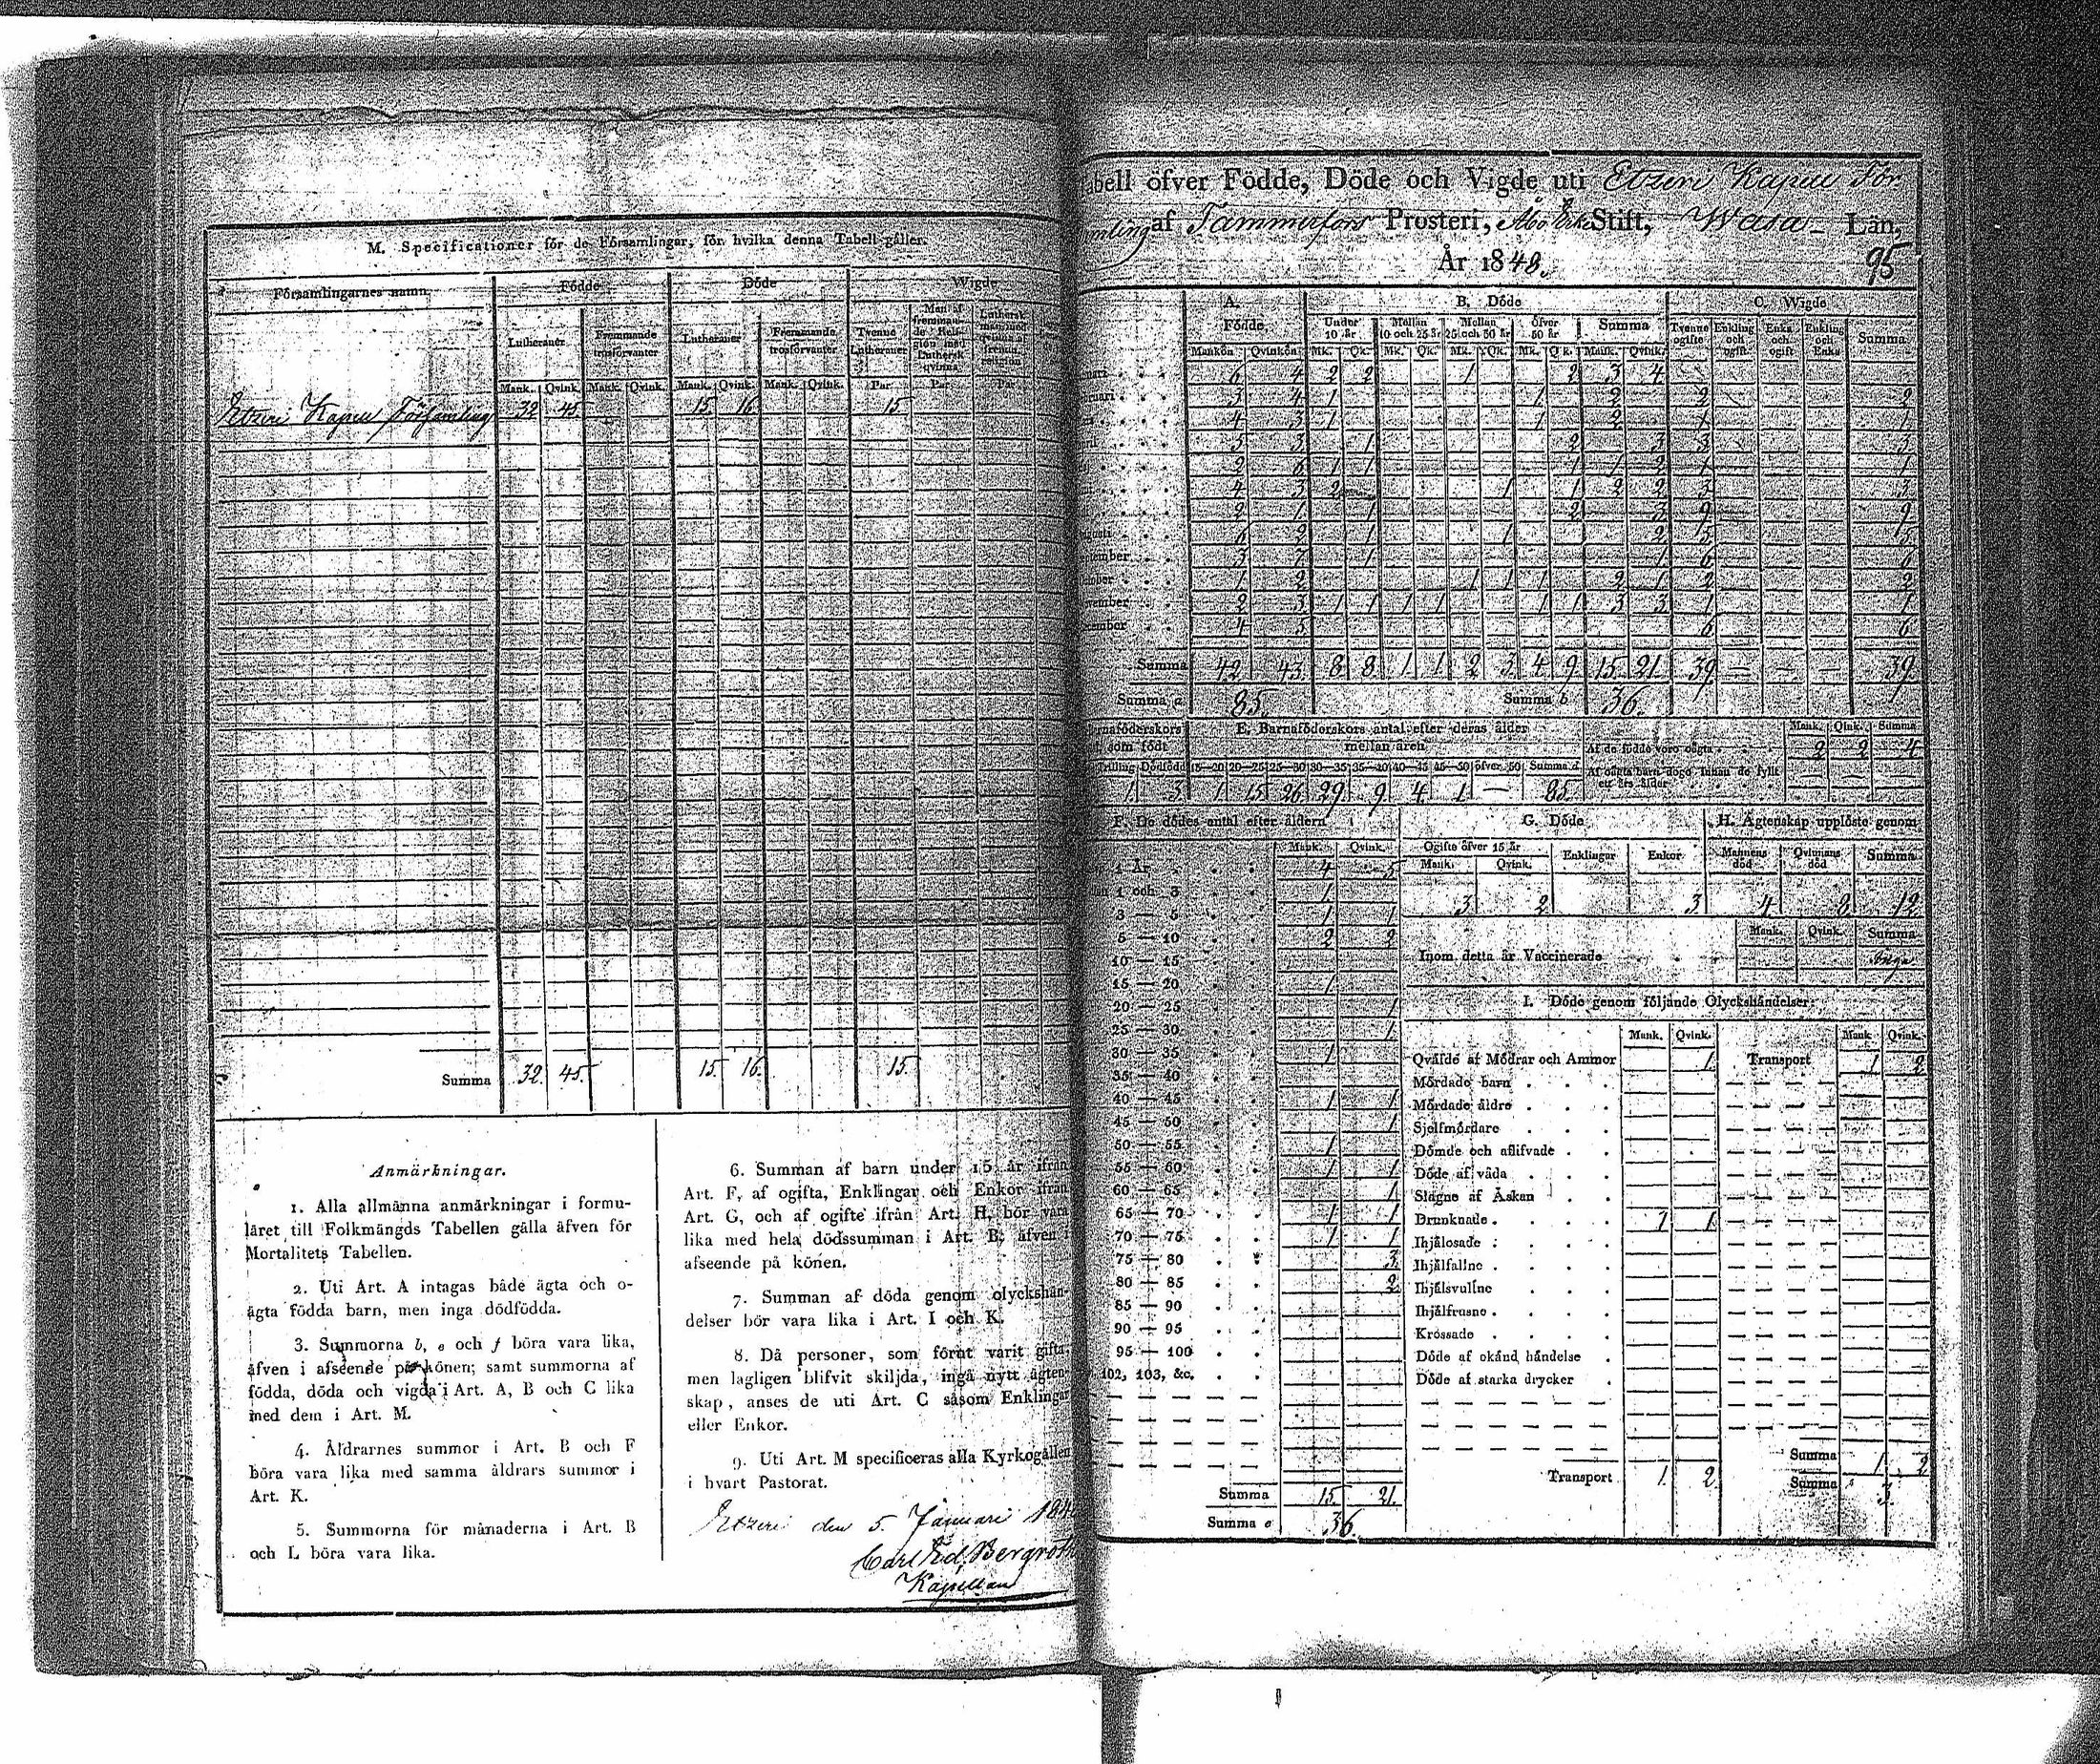 M. Specificationer för de Församlingar, för hvilka denna Tabell gäller.
Församlingarnes namn. Födde Döde Wigde
Lutheraner Fremmande trosförvanter Lutheraner Fremmande trosförvanter Tvenne Lutheraner Man af fremmande Religion med Luthersk qvinna Luthersk man med qvinna af fremm. religion
Mank. Qvink. Mank. Qvink. Mank. Qvink. Mank. Qvink. Par Par Par
Etzeri Kapell Församling 32 45 15 16 15
Summa 32. 45. 15 16. 15.
Anmärkningar.
1. Alla allmänna anmärkningar i formu-
läret till Folkmängds Tabellen gälla äfven för
Mortalitets Tabellen.
2. Uti Art. A intagas både ägta och o-
ägta födda barn, men inga dödfödda.
3. Summorna b, e och f böra vara lika,
äfven i afseende på könen; samt summorna af
födda, döda och vigda i Art. A, B och C lika
med dem i Art. M.
4. Åldrarnes summor i Art. B och F
böra vara lika med samma åldrars summor i
Art. K.
5. Summorna för månaderna i Art. B
och L böra vara lika.
6. Summan af barn under 15 år ifrån
Art. F, af ogifta, Enklingar och Enkor ifrån
Art. G, och af ogifte ifrån Art. H, bör vara
lika med hela dödssumman i Art. B; äfven i
afseende på könen.
7. Summan af döda genom olyckshän-
delser bör vara lika i Art. I och K.
8. Då personer, som förut varit gifta,
men lagligen blifvit skiljda, ingå nytt ägten-
skap, anses de uti Art. C såsom Enklingar
eller Enkor.
9. Uti Art. M specificeras alla Kyrkogällen
i hvart Pastorat.
Etzeri den 5. Januari
Carl Ed. Bergroth
Kapellan
abell öfver Födde, Döde och Vigde uti Etzeri Kapell För
amling af Tammerfors Prosteri, Åbo Erke Stift, Wasa Län,
År 1848. 95
A. Födde B. Döde C. Wigde
Under 10 år Mellan 10 och 25 år Mellan 25 och 50 år Öfver 50 år Summa Tvenne ogifte Enkling och ogift Enka och ogift Enkling och Enka Summa
Mankön Qvinkön Mk. Qk. Mk. Qk. Mk. Qk. Mk. Qk. Mank. Qvink.
6 4 2 2 1 2 3 4
4 1 1 2 2 2
4 3 1 1 2 1 1
5 3 1 2 3 3 3
2 6 1 1 1 1 2 1 1
4 3 2 1 1 2 2 3 3
2 1 1 2 3 9 9
6 2 1 1 2 5 5
tember 3 7 1 1 6 6
1 2 1 1 1 2 1 2 2
vember 2 3 1 1 1 1 1 1 3 3 1 1
cember 4 5 6 6
Summa 42 43 8 8 1 1 2 3 4 9 15 21 39 — — — 39
Summa a 85. Summa b 36.
rnaföderskors som födt E. Barnaföderskors antal efter deras ålder mellan åren Mank. Qink. Summa
Af de födde voro oägta 2 2 4
Trilling Dödfödd 15—20 20—25 25—30 30—35 35—40 40—45 45—50 öfver 50 Summa d
Af oägta barn dogo innan de fyllt ett års ålder
1. 3. 1. 15 26 29 9 4 1 — 85.
F. De dödes antal efter åldern G. Döde H. Ägtenskap upplöste genom
Mank. Qvink. Ogifte öfver 15 år Enklingar Enkor Mannens död Qvinnans död Summa
Mank. Qvink.
1 År 4 5
1 och 3 1
3 2 3 4 8 12
3 — 5 1 1
5 — 10 2 2
Mank. Qvink. Summa
10 — 15 Inom detta år Vaccinerade Inga
15 — 20 1
20 — 25 1 I. Döde genom följande Olyckshändelser:
25 — 30 1 Mank. Qvink. Mank. Qvink.
30 — 35 1 Qväfde af Mödrar och Ammor 1 Transport 1 2
35 — 40 Mördade barn
40 — 45 1 1 Mördade äldre
45 — 50 1 Sjelfmördare
50 — 55 1 Dömde och aflifvade
55 — 60 1 1 Döde af våda
60 — 65 1 Slagne af Åskan
65 — 70 1 1 Drunknade 1 1
70 — 75 1 1 Ihjälosade
75 — 80 3 Ihjälfallne
80 — 85 2 Ihjälsvultne
85 — 90 Ihjälfrusne
90 — 95 Krossade
95 — 100 Döde af okänd händelse
102, 103, &c. Döde af starka drycker
Summa 1 2
Transport 1. 2 Summa 3.
Summa 15. 21.
Summa e 36.